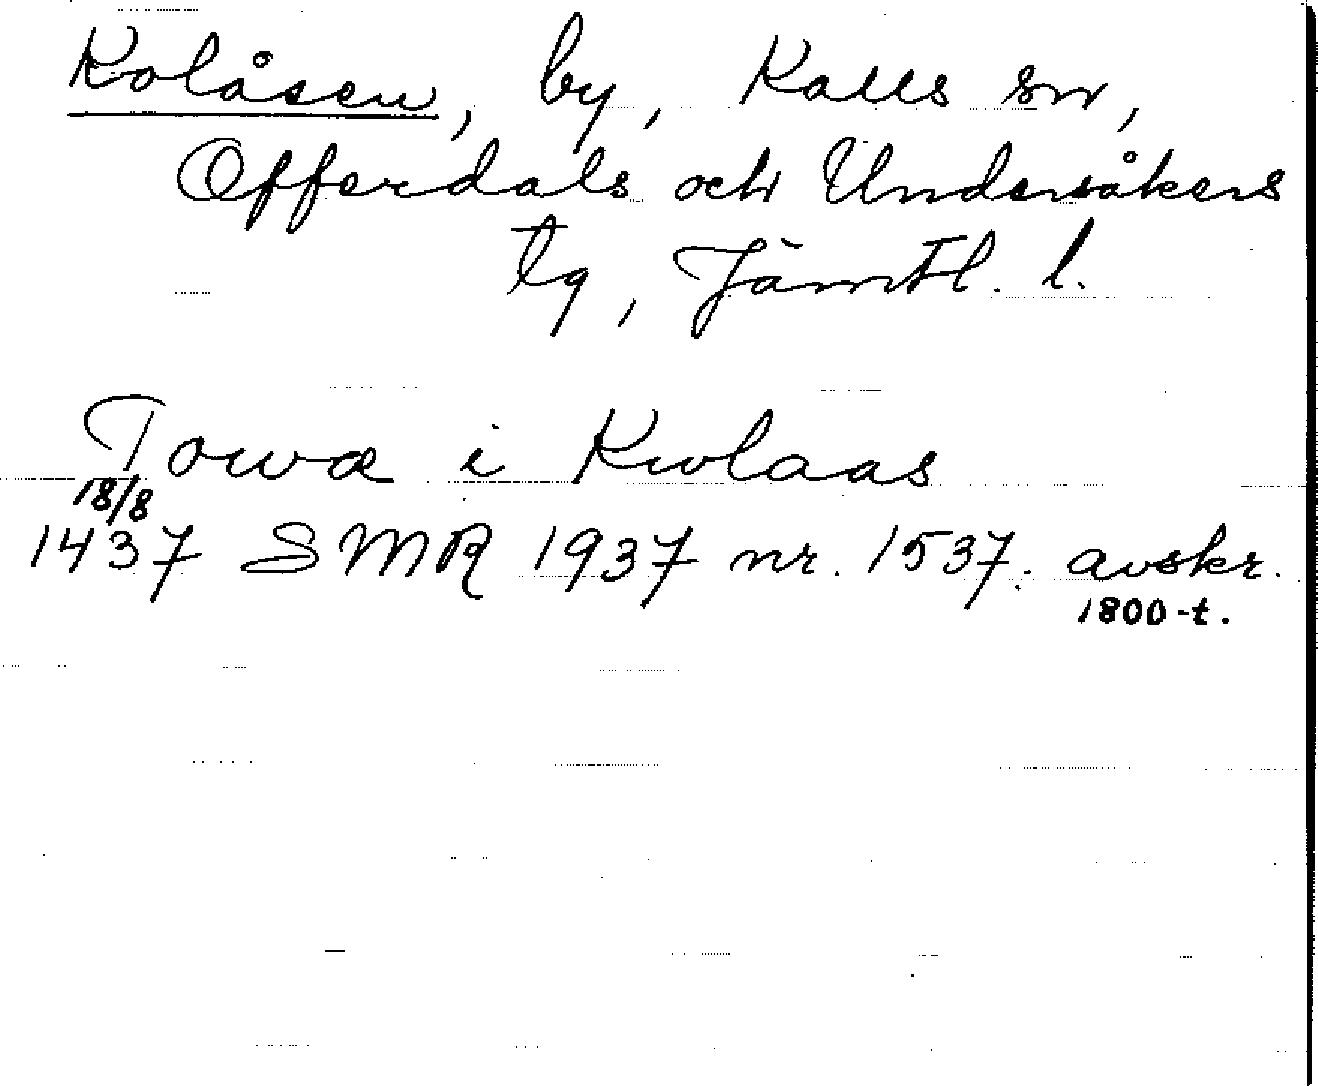 Kolåsen, by, Kalls sn,
Offerdals och Undersåkers
tg, Jämtl. l.
Towæ i Kwlaas
18/8
1437 SMR 1937 nr. 1537. avskr.
1800-t.